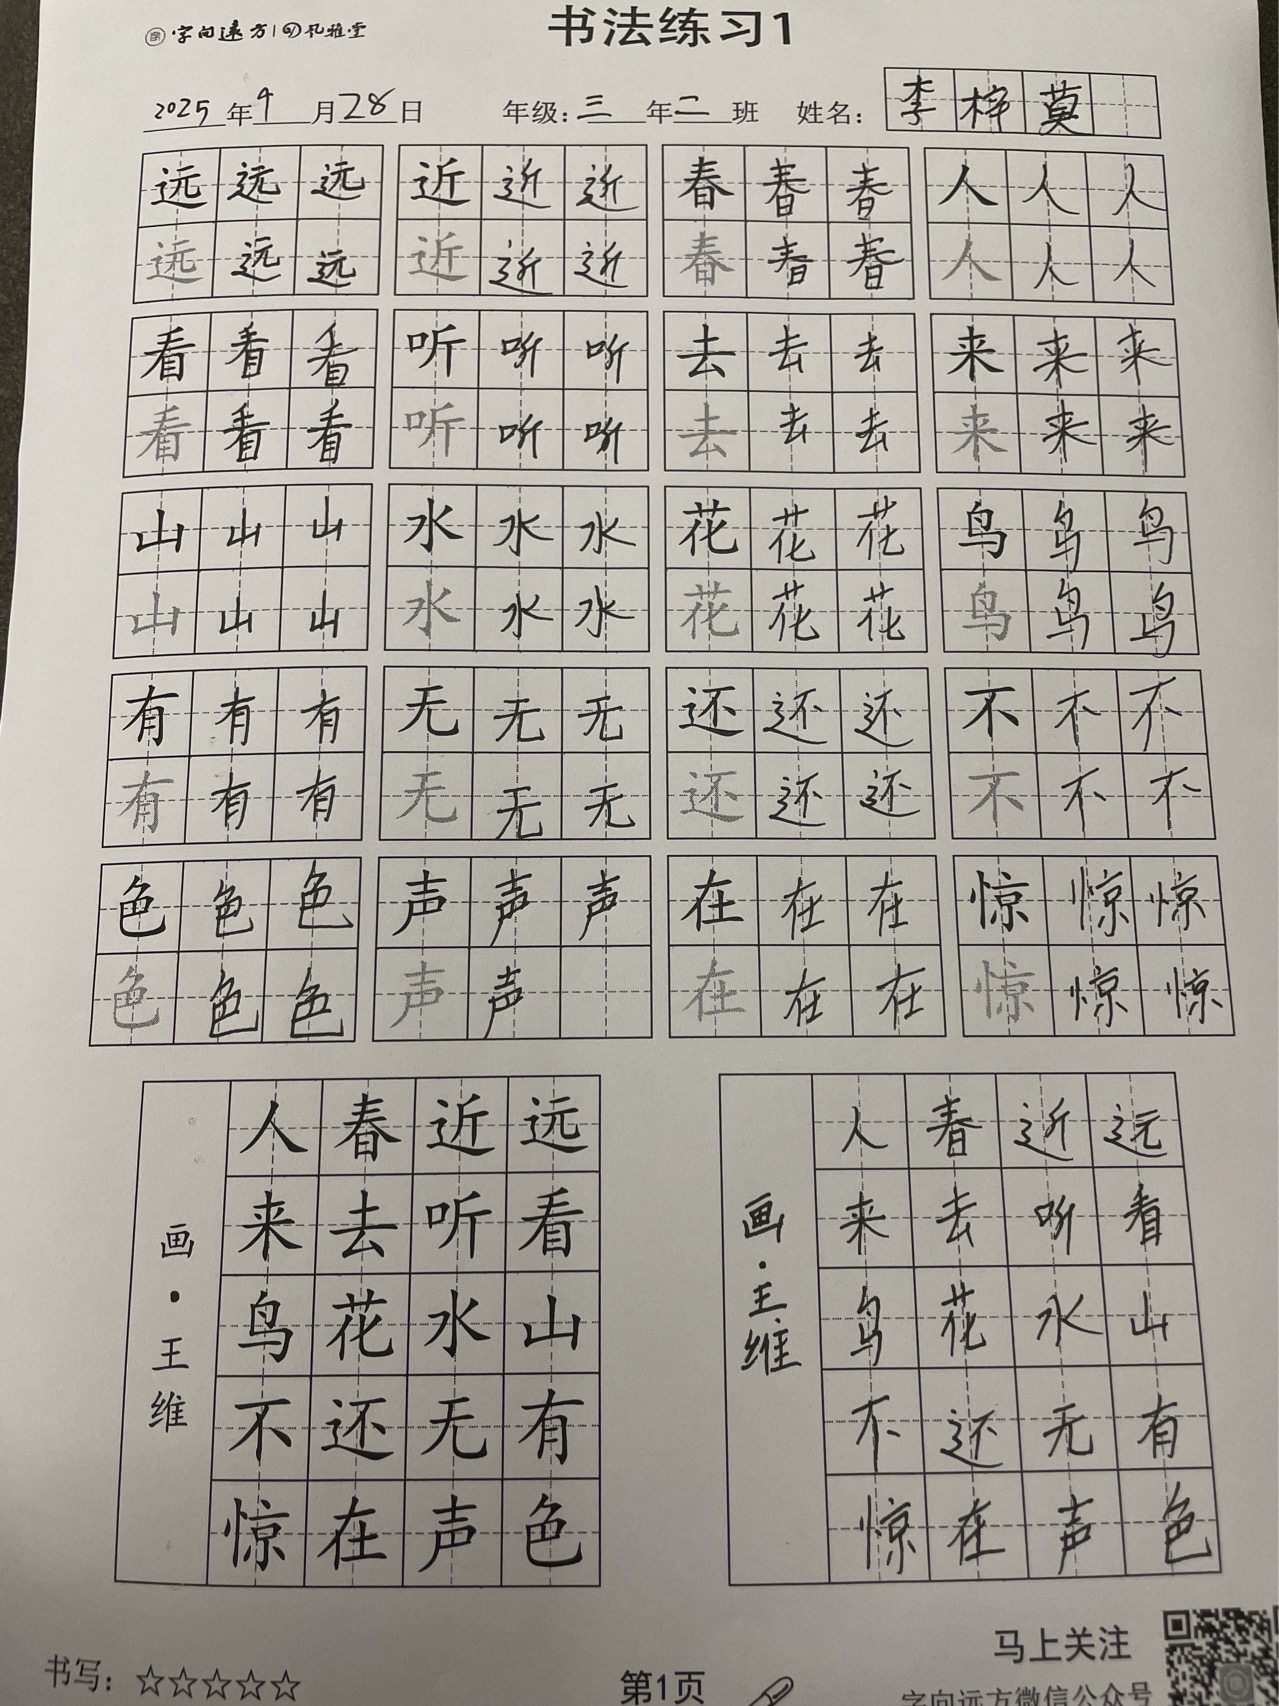 字向远方|孔雅堂
书法练习1
2025年9月28日 年级:三年二班 姓名:李梓莫
远远远 近近近 春春春 人人人
远远远 近近近 春春春 人人人
看看看 听听听 去去去 来来来
看看看 听听听 去去去 来来来
山山山 水水水 花花花 鸟鸟鸟
山山山 水水水 花花花 鸟鸟鸟
有有有 无无无 还还还 不不不
有有有 无无无 还还还 不不不
色色色 声声声 在在在 惊惊惊
色色色 声声 在在在 惊惊惊
远看山有色
近听水无声
春去花还在
人来鸟不惊
画·王维
远看山有色
近听水无声
春去花还在
人来鸟不惊
画·王维
书写:☆☆☆☆☆
第1页
马上关注
字向远方微信公众号